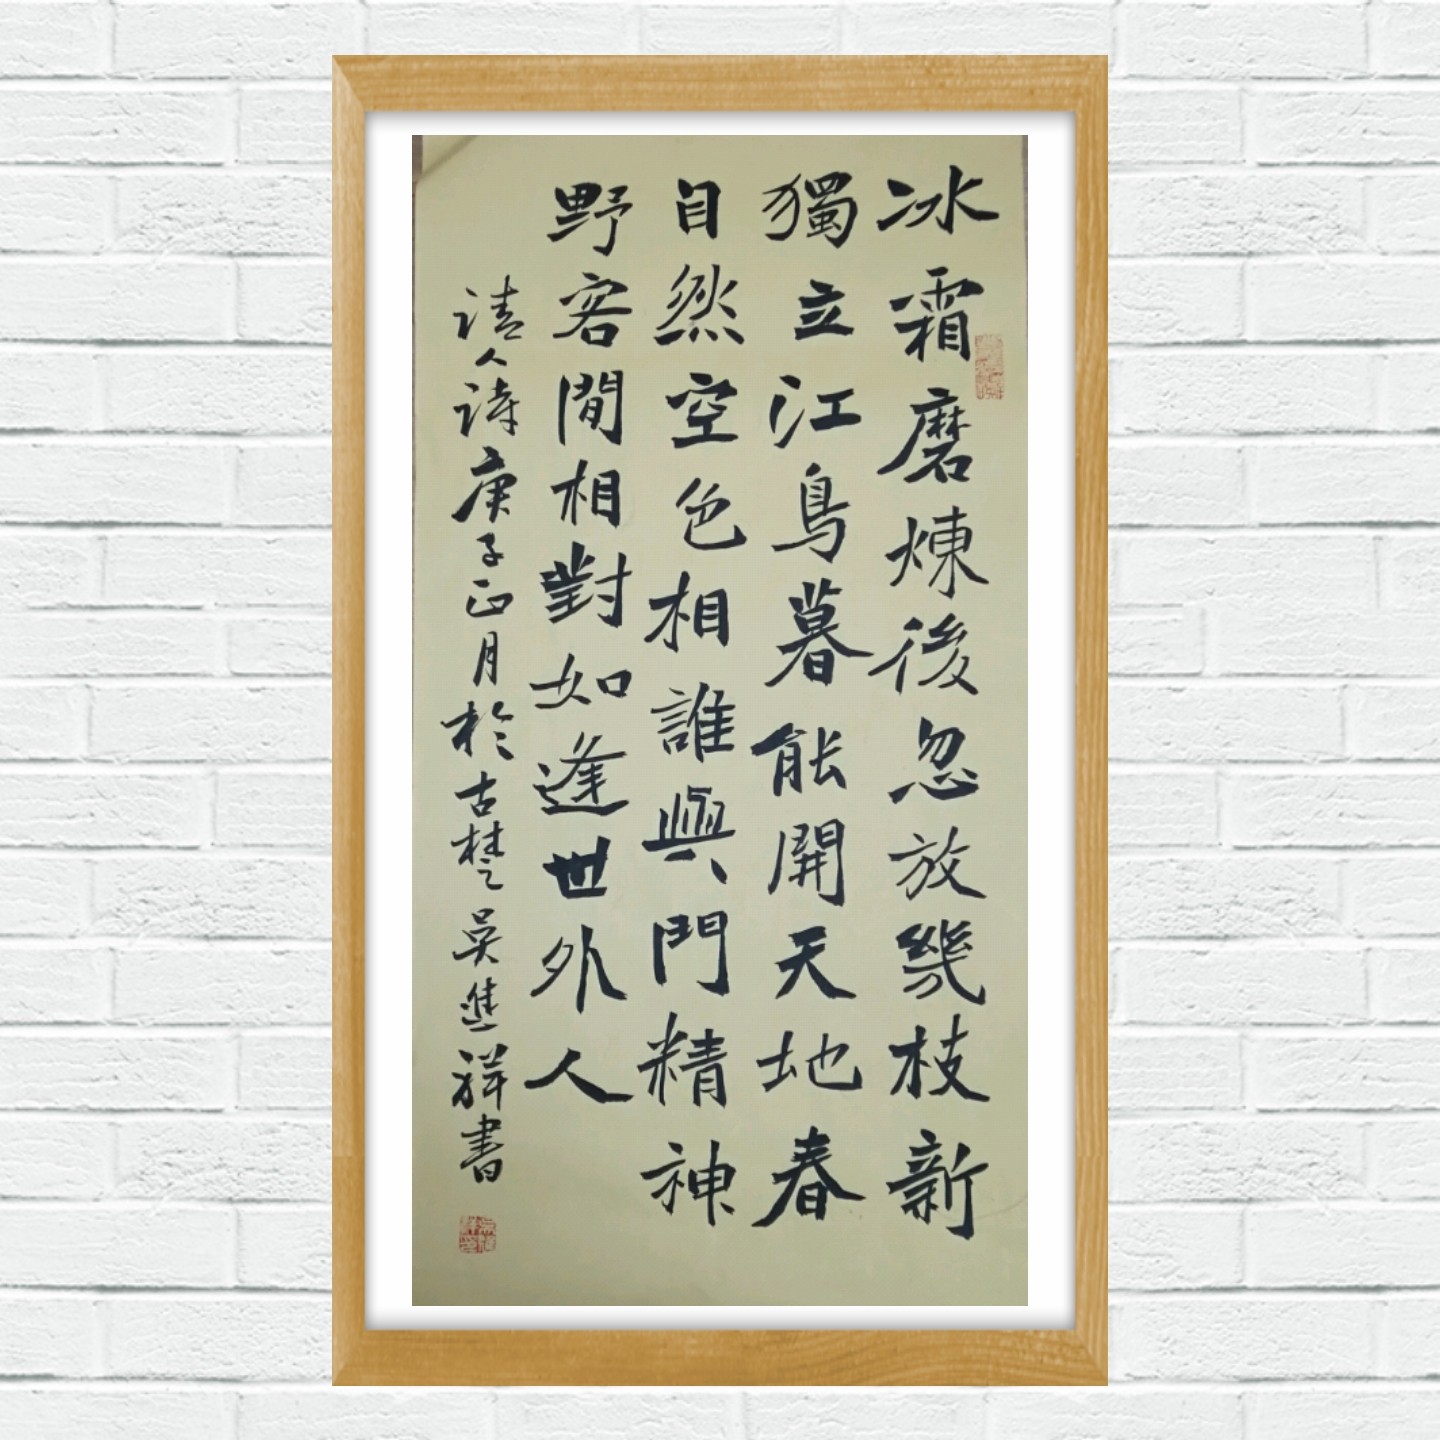 冰霜磨煉後忽放幾枝新
獨立江鳥暮能開天地春
自然空色相誰與門精神
野客閒相對如逢世外人
清人詩庚子正月於古楚吳進祥書